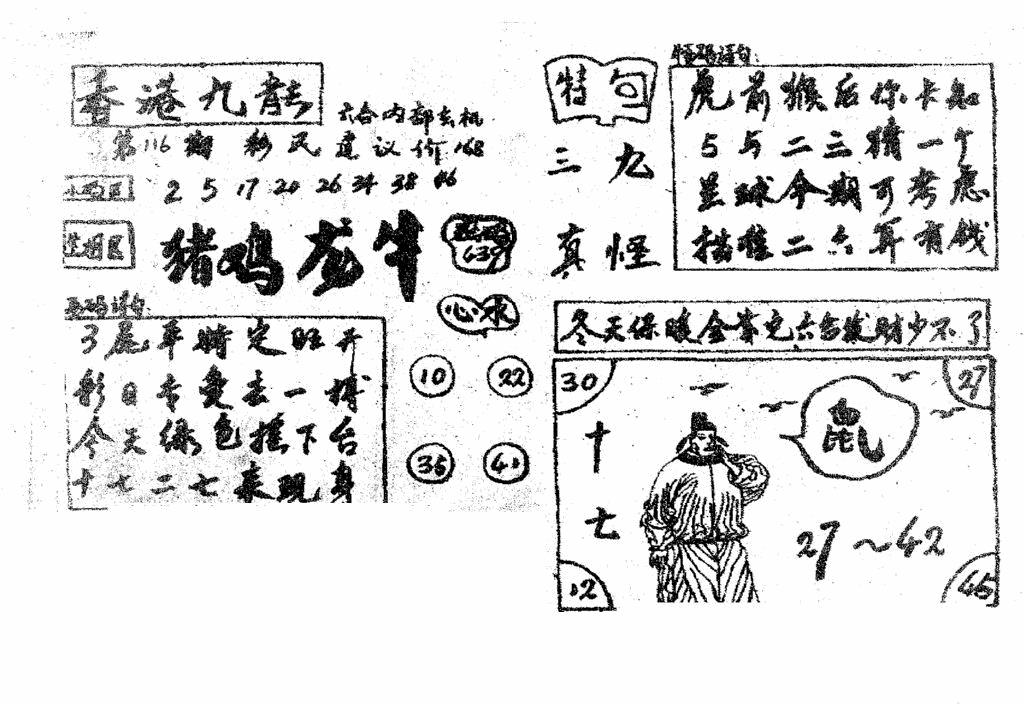 香港九龍
六合内部玄机
第116期 彩民建议价168
2 5 17 20 26 34 38 46
猪鸡龙牛
639
心水
3尾平特定旺开
彩日专爱去一搏
今天绿色摇下台
十七二七来现身
10 22
36 41
特句
三九
真怪
虎前猴后你卡知
5与二三猜一个
星球今期可考虑
描准二六耳有钱
冬天保暖全靠它六合发财少不了
30 27
十七
鼠
27~42
12 45